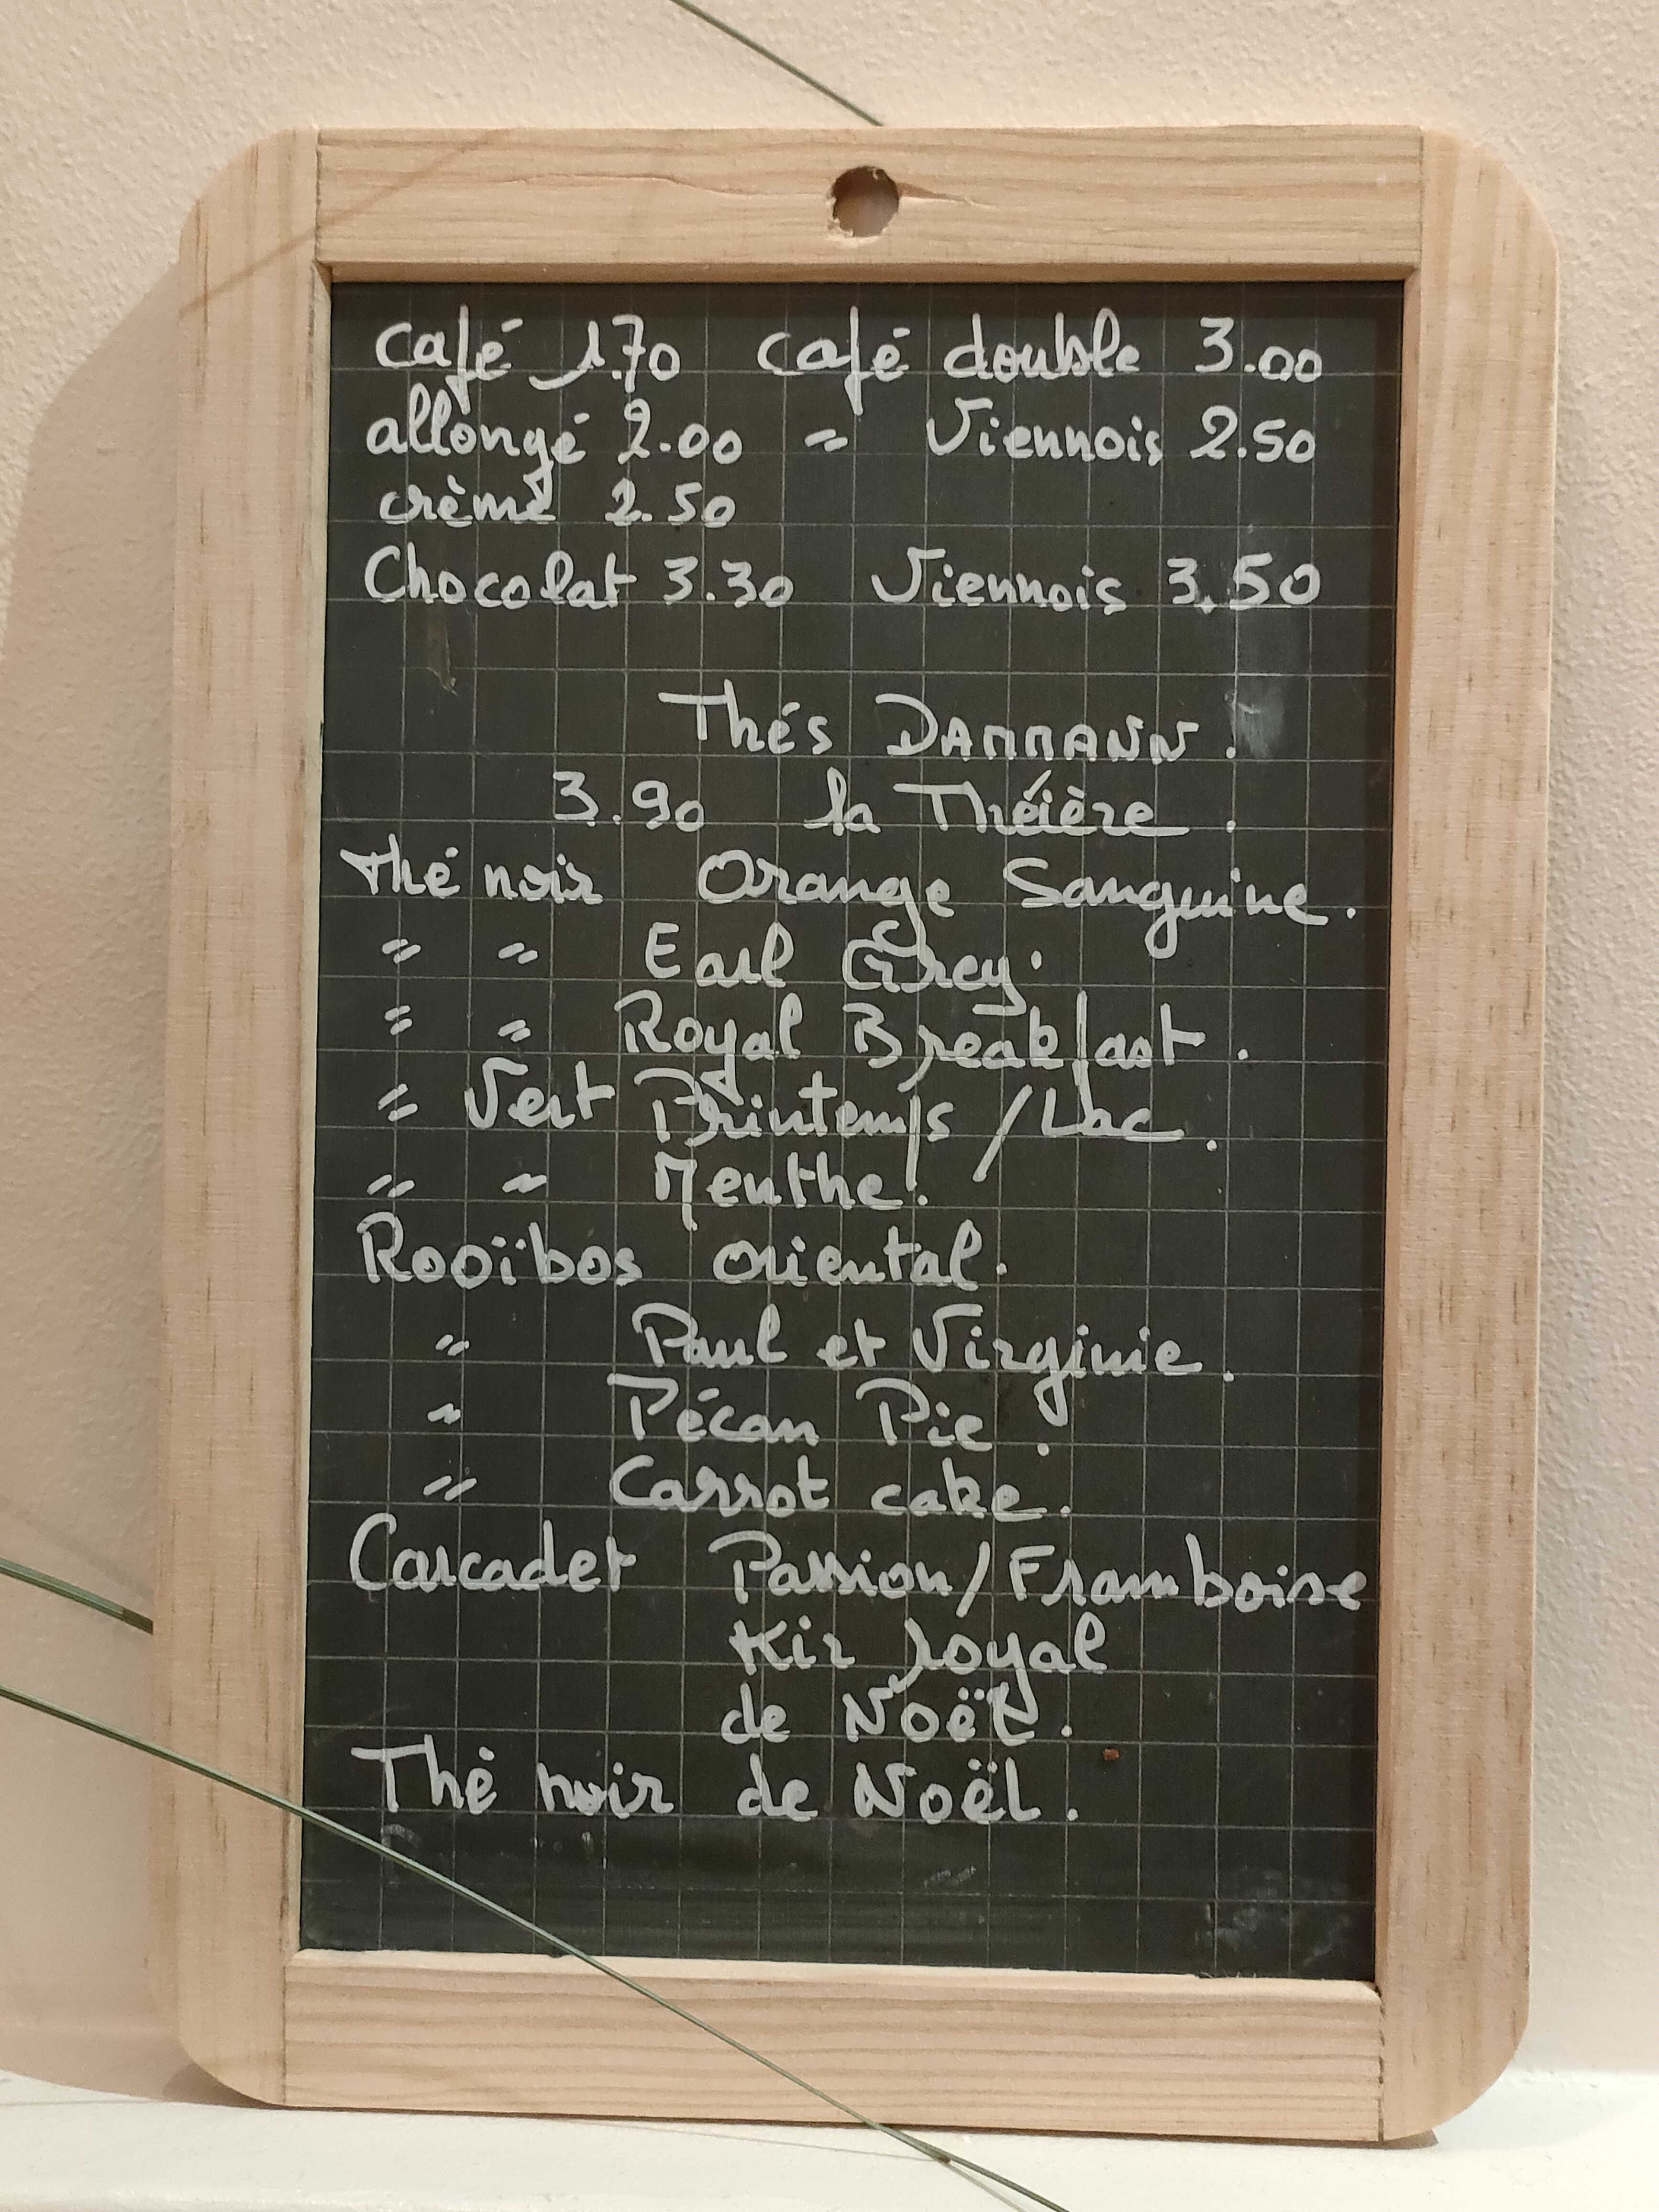 café 1.70 café double 3.00
allongé 2.00 " Viennois 2.50
crème 2.50
Chocolat 3.30 Viennois 3.50
Thés DAMMANN.
3.90 la Théière.
Thé noir Orange Sanguine.
" " Earl Grey.
" " Royal Breakfast.
" Vert Printemps / Lac.
" " Menthe.
Rooïbos oriental.
" Paul et Virginie.
" Pécan Pie.
" Carrot cake.
Carcadet Passion/Framboise
Kir royal
de Noël.
Thé noir de Noël.